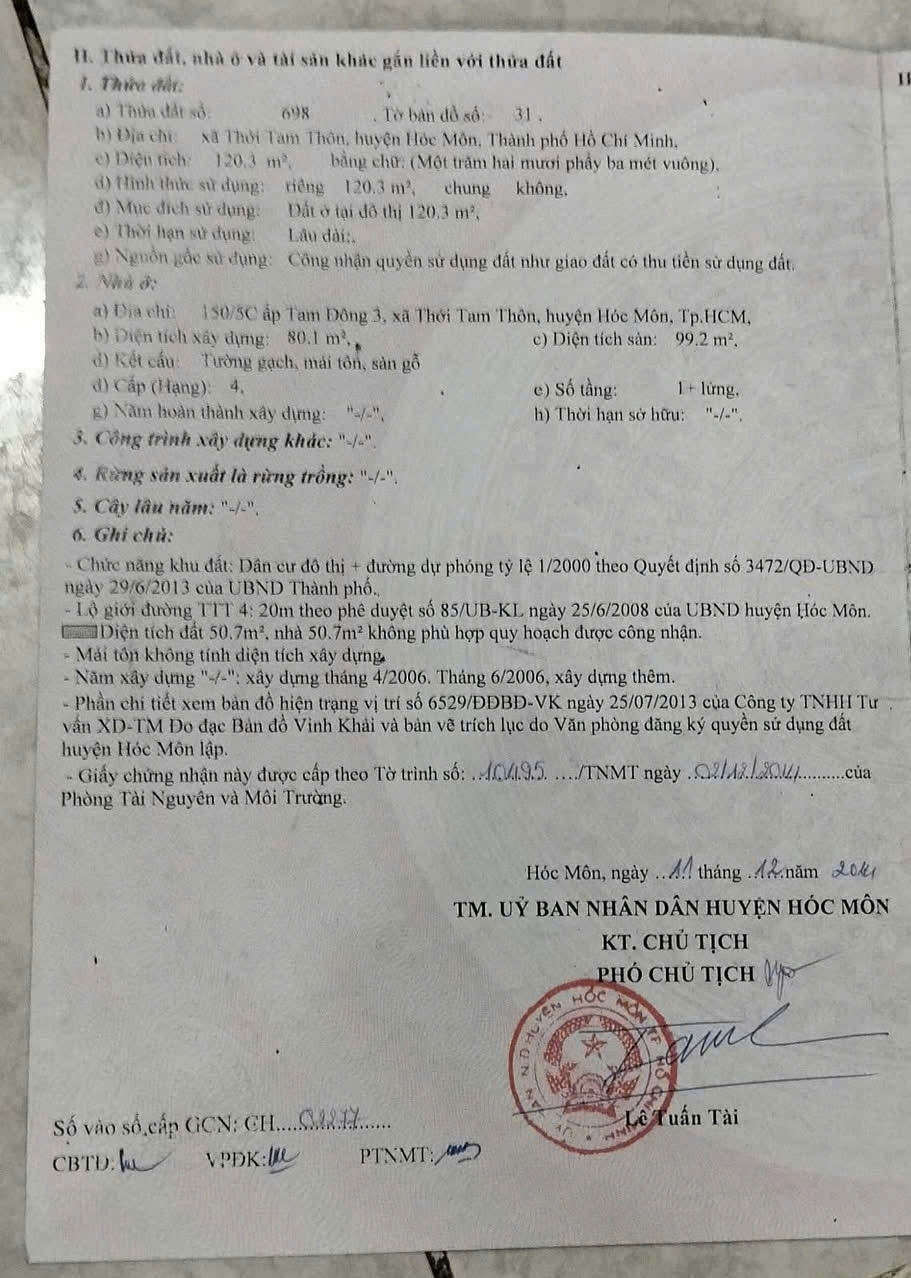 II. Thửa đất, nhà ở và tài sản khác gắn liền với thửa đất
1. Thửa đất:
a) Thửa đất số: 698 . Tờ bản đồ số: 31 .
b) Địa chỉ: xã Thới Tam Thôn, huyện Hóc Môn, Thành phố Hồ Chí Minh,
c) Diện tích: 120.3 m², bằng chữ: (Một trăm hai mươi phẩy ba mét vuông),
d) Hình thức sử dụng: riêng 120.3 m², chung không,
đ) Mục đích sử dụng: Đất ở tại đô thị 120.3 m²,
e) Thời hạn sử dụng: Lâu dài;.
g) Nguồn gốc sử dụng: Công nhận quyền sử dụng đất như giao đất có thu tiền sử dụng đất.
2. Nhà ở:
a) Địa chỉ: 150/5C ấp Tam Đông 3, xã Thới Tam Thôn, huyện Hóc Môn, Tp.HCM,
b) Diện tích xây dựng: 80.1 m², c) Diện tích sàn: 99.2 m²,
d) Kết cấu: Tường gạch, mái tôn, sàn gỗ
đ) Cấp (Hạng): 4, e) Số tầng: 1+ lửng,
g) Năm hoàn thành xây dựng: "-/-", h) Thời hạn sở hữu: "-/-".
3. Công trình xây dựng khác: "-/-".
4. Rừng sản xuất là rừng trồng: "-/-".
5. Cây lâu năm: "-/-".
6. Ghi chú:
- Chức năng khu đất: Dân cư đô thị + đường dự phóng tỷ lệ 1/2000 theo Quyết định số 3472/QĐ-UBND
ngày 29/6/2013 của UBND Thành phố.
- Lộ giới đường TTT 4: 20m theo phê duyệt số 85/UB-KL ngày 25/6/2008 của UBND huyện Hóc Môn.
Diện tích đất 50.7m², nhà 50.7m² không phù hợp quy hoạch được công nhận.
- Mái tôn không tính diện tích xây dựng.
- Năm xây dựng "-/-": xây dựng tháng 4/2006. Tháng 6/2006, xây dựng thêm.
- Phần chi tiết xem bản đồ hiện trạng vị trí số 6529/ĐĐBĐ-VK ngày 25/07/2013 của Công ty TNHH Tư
vấn XD-TM Đo đạc Bản đồ Vinh Khải và bản vẽ trích lục do Văn phòng đăng ký quyền sử dụng đất
huyện Hóc Môn lập.
- Giấy chứng nhận này được cấp theo Tờ trình số: ..10495. ..../TNMT ngày .02/12/2014..........của
Phòng Tài Nguyên và Môi Trường.
Hóc Môn, ngày ..11 tháng ..12.năm 2014
TM. UỶ BAN NHÂN DÂN HUYỆN HÓC MÔN
KT. CHỦ TỊCH
PHÓ CHỦ TỊCH
Lê Tuấn Tài
Số vào sổ cấp GCN: CH....02277......
CBTD: VPĐK: PTNMT: